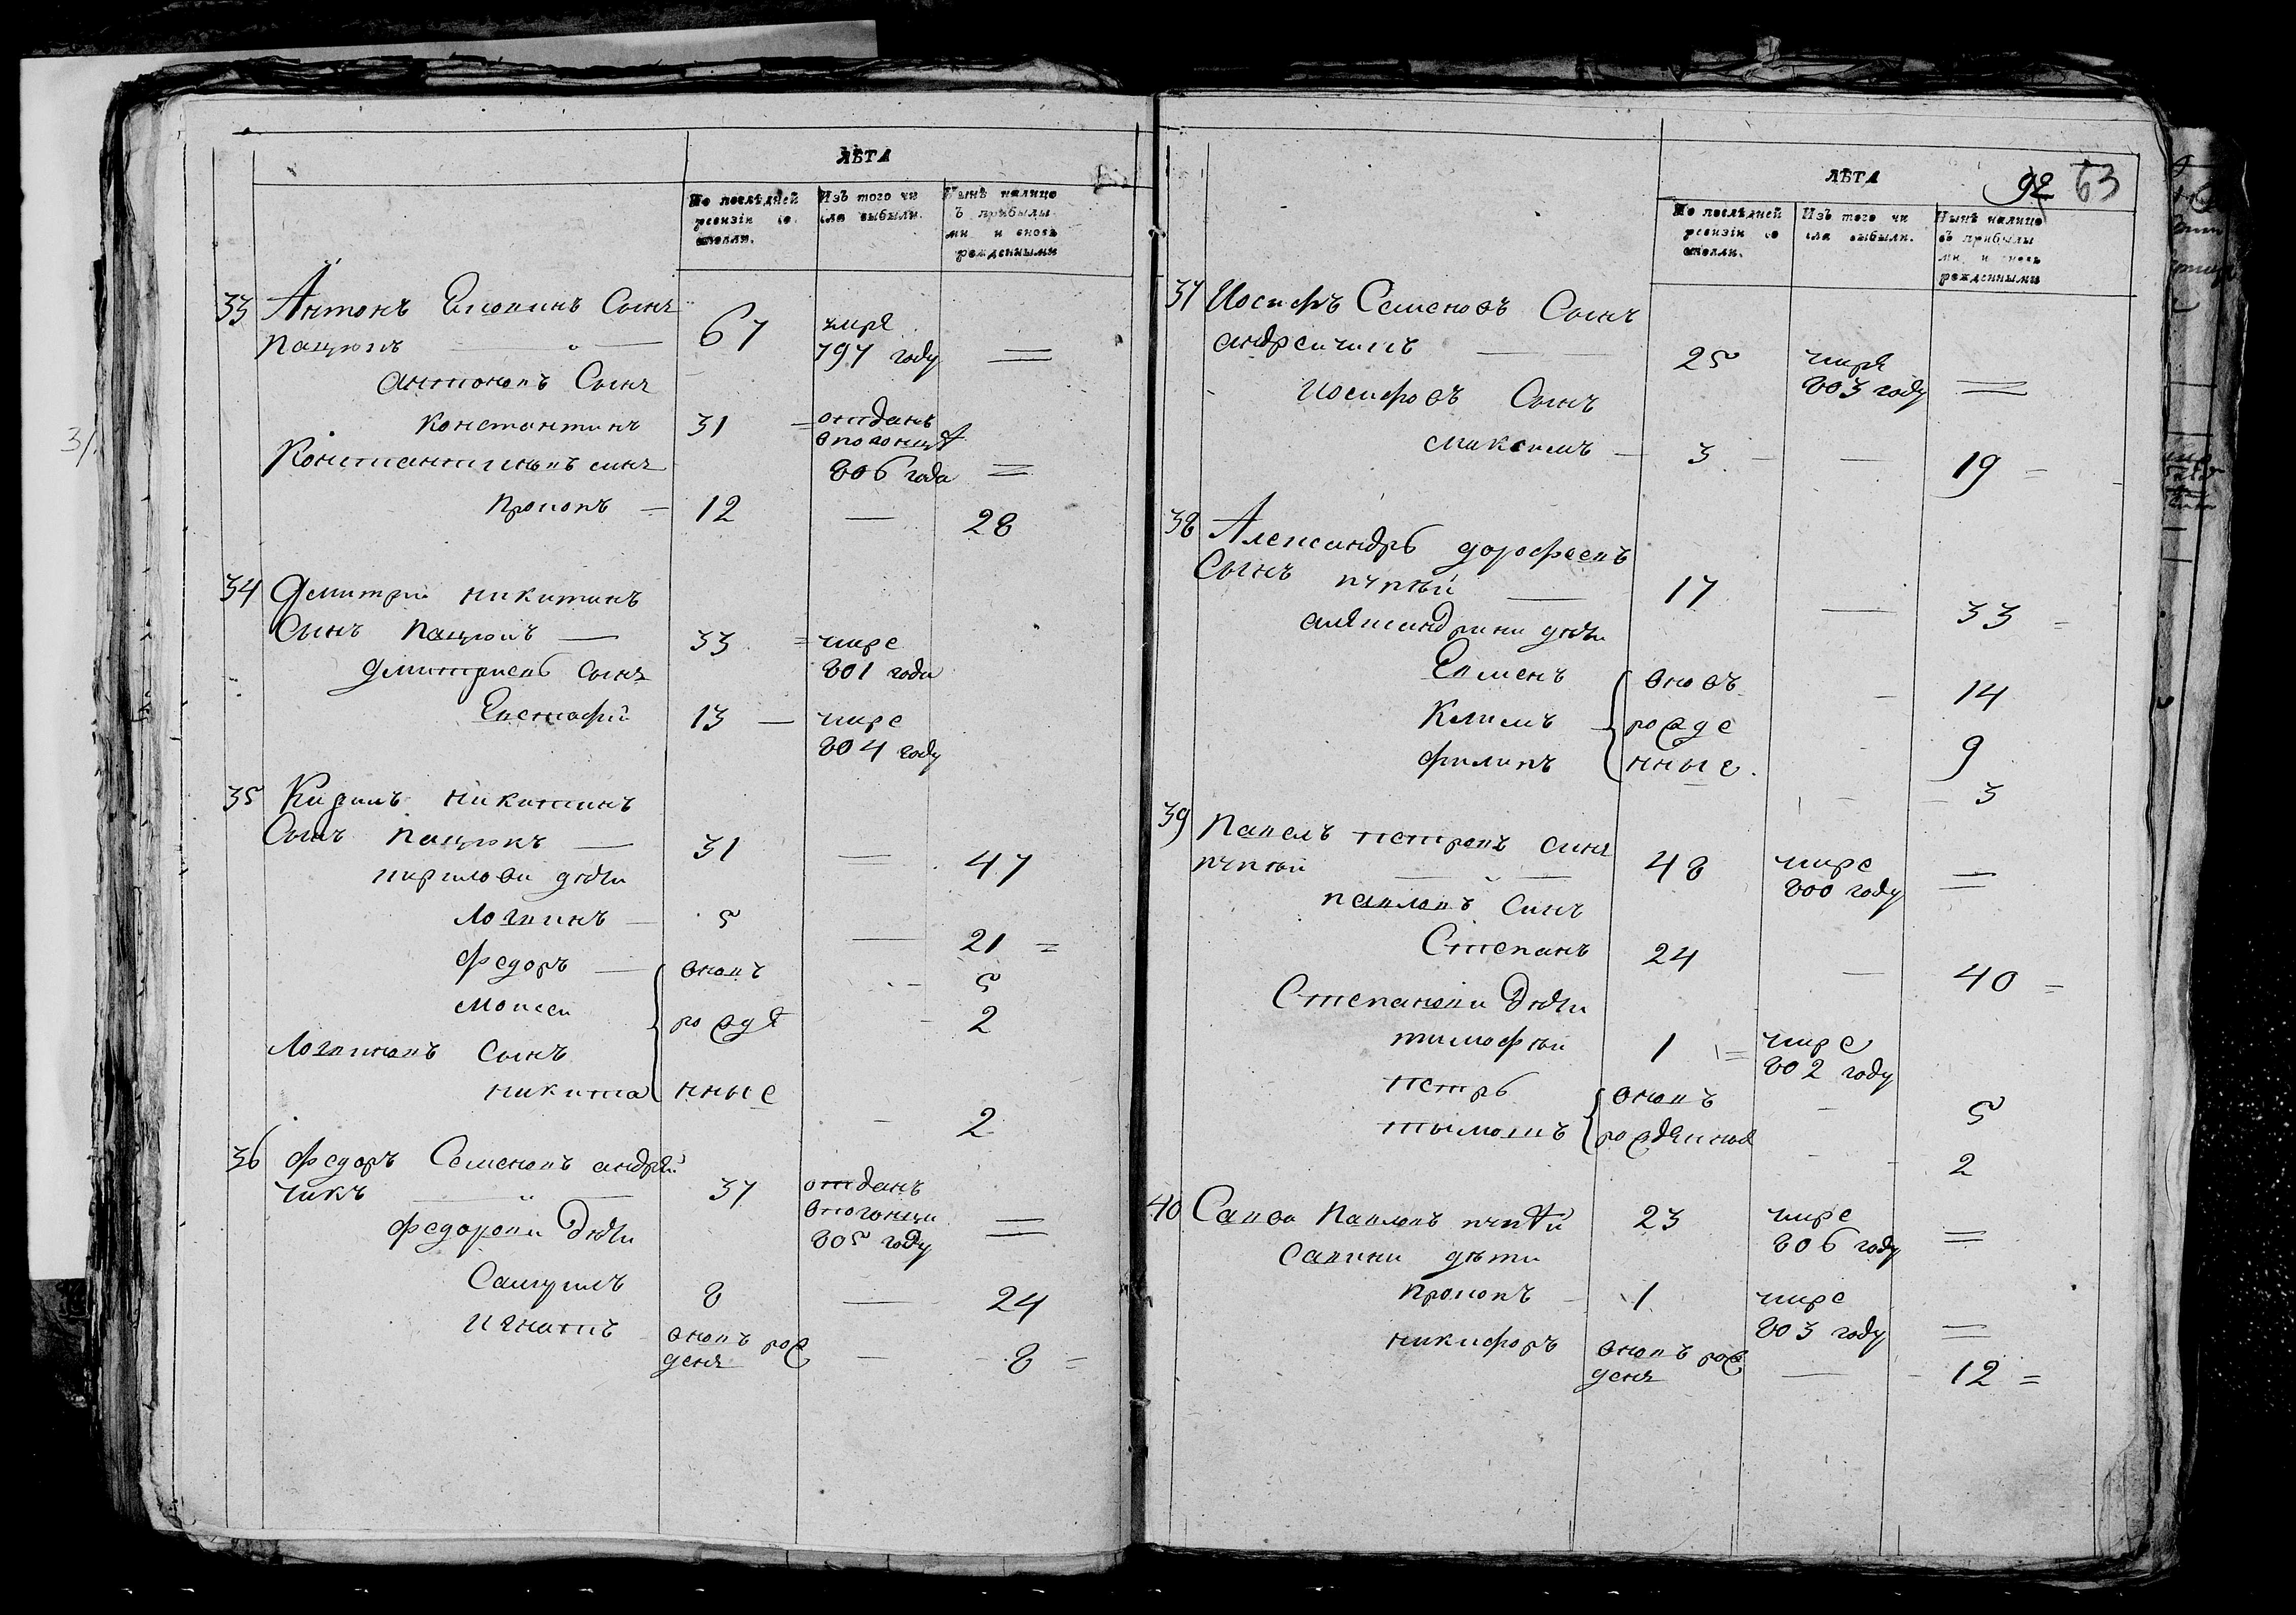 ЛѢТА
По послѣдней ревизіи со стояли.
Изъ того чи сла выбыли.
Нынѣ налицо съ прибылы ми и вновь рожденными
33 Антонъ сынъ
Пацюкъ — 67 умре
797 году =
антоновъ Сынъ
Константинъ 31 = отданъ
806 года =
Константиновъ синъ
Прокопъ — 12 — 28
34 Дмитрій никитинъ
Синъ Пацюкъ — 33 = умре
801 годи
Дмитріевъ сынъ
Евстафій 13 — умре
804 году
35 Кирилъ никитинъ
Сынъ Пацюкъ — 31 — 47
кирилови дѣти
Логвинъ — 5 — 21 =
Федоръ — вновъ - 5
моисеи рожде - 2
Логвиновъ Сынъ
никита нные - 2
36 Федоръ Семеновъ андрей
чикъ — 37 отданъ
805 году =
Федорови Дѣти
Самуилъ 8 — 24
Игнатъ вновъ рож
денъ — 8 =
92 63
ЛѢТА
По послѣдней ревизіи со стояли.
Изъ того чи сла выбыли.
Нынѣ налицо съ прибылы ми и вновь рожденными
37 Иосифъ Семеновъ Сынъ
андрейчикъ — 25 умре
803 году =
Иосифовъ Сынъ
Максимъ — 3 — 19 =
38 Александръ дорофеевъ
Сынъ — 17 — 33 =
александрини дѣти
Евменъ вновъ - 14
Климъ рожде - 9
филипъ нные. - 3
39 Павелъ петровъ синъ
48 умре
800 году =
павловъ синъ
Степанъ 24 — 40 =
Степанови Дѣти
тимофѣи 1 = умре
802 году
петръ вновъ - 5
рожденные - 2
40 Сава Павловъ 23 умре
806 году =
Савини дѣти
Прокопъ - 1 умре
803 году =
никифоръ вновъ рож
денъ — 12 =